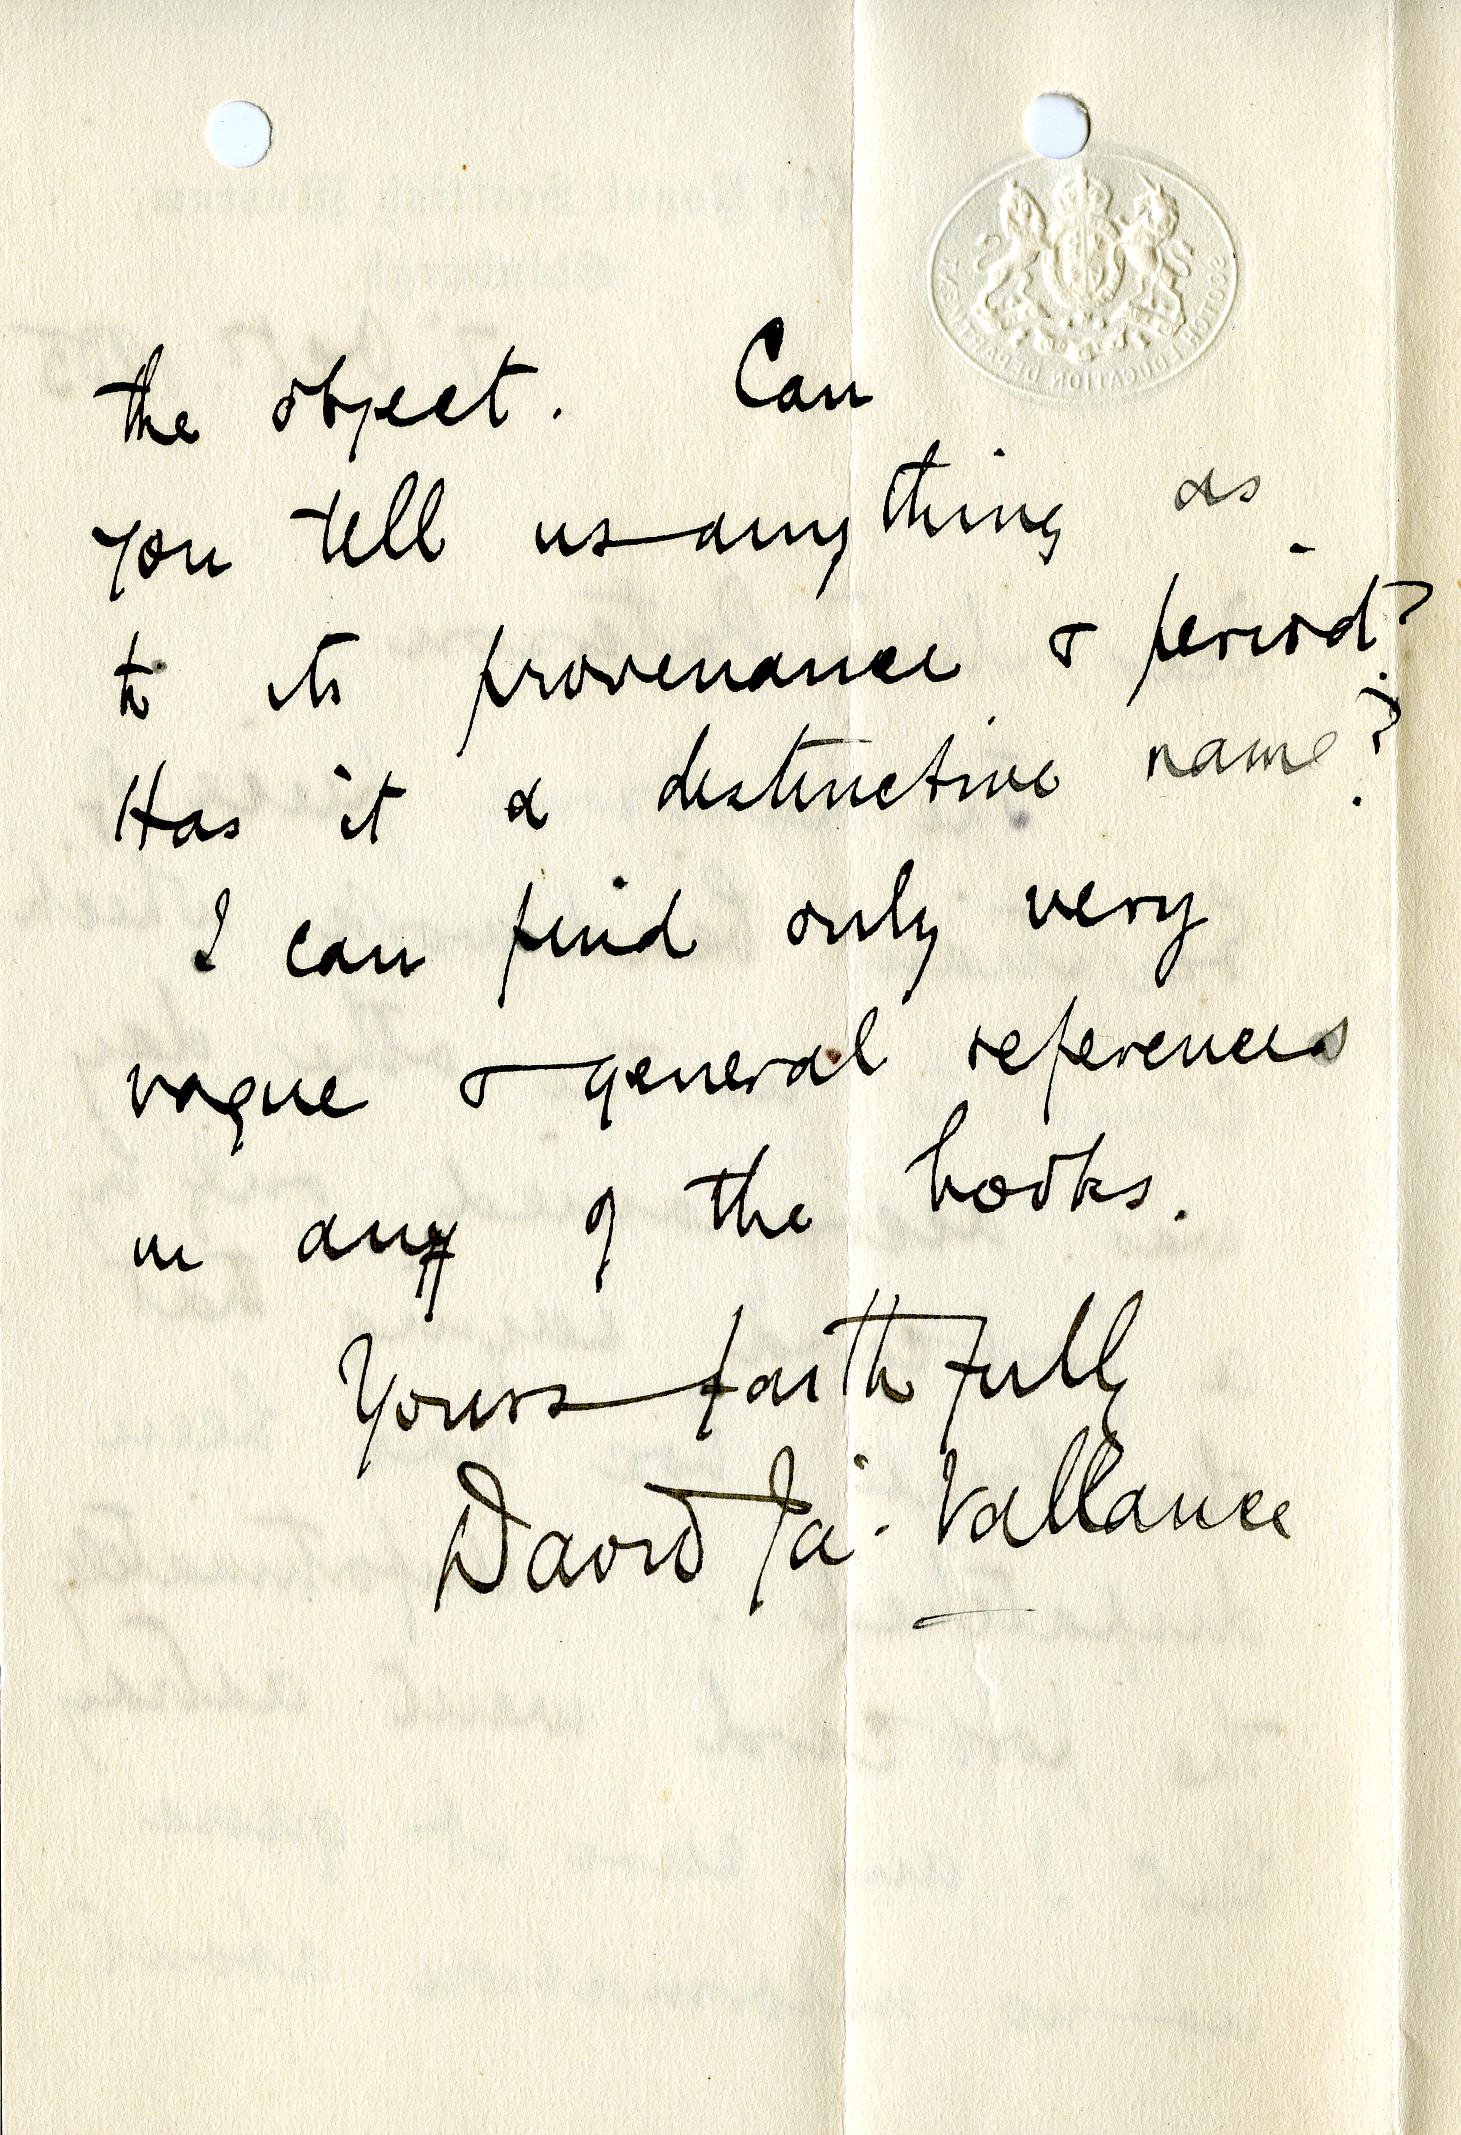 the object. Can
you tell us anything as
to its provenance & period?
Has it a distinctive name?
I can find only very
vague & general references
in any of the books.
Yours faithfully
David Ja. Vallance
SCOTCH EDUCATION DEPARTMENT